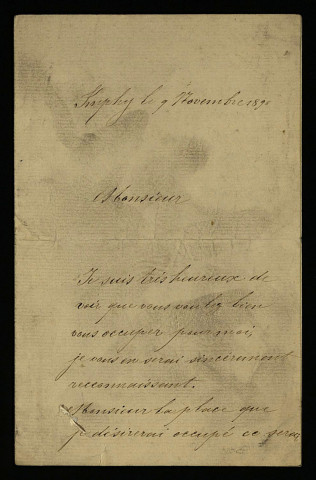 Imphy le 9 Novembre 1890
Monsieur
Je suis très heureux de
voir que vous voulez bien
vous occuper pour moi,
je vous en serai sincèrement
reconnaissant.
Monsieur la place que
je désirerai occupé ce serai